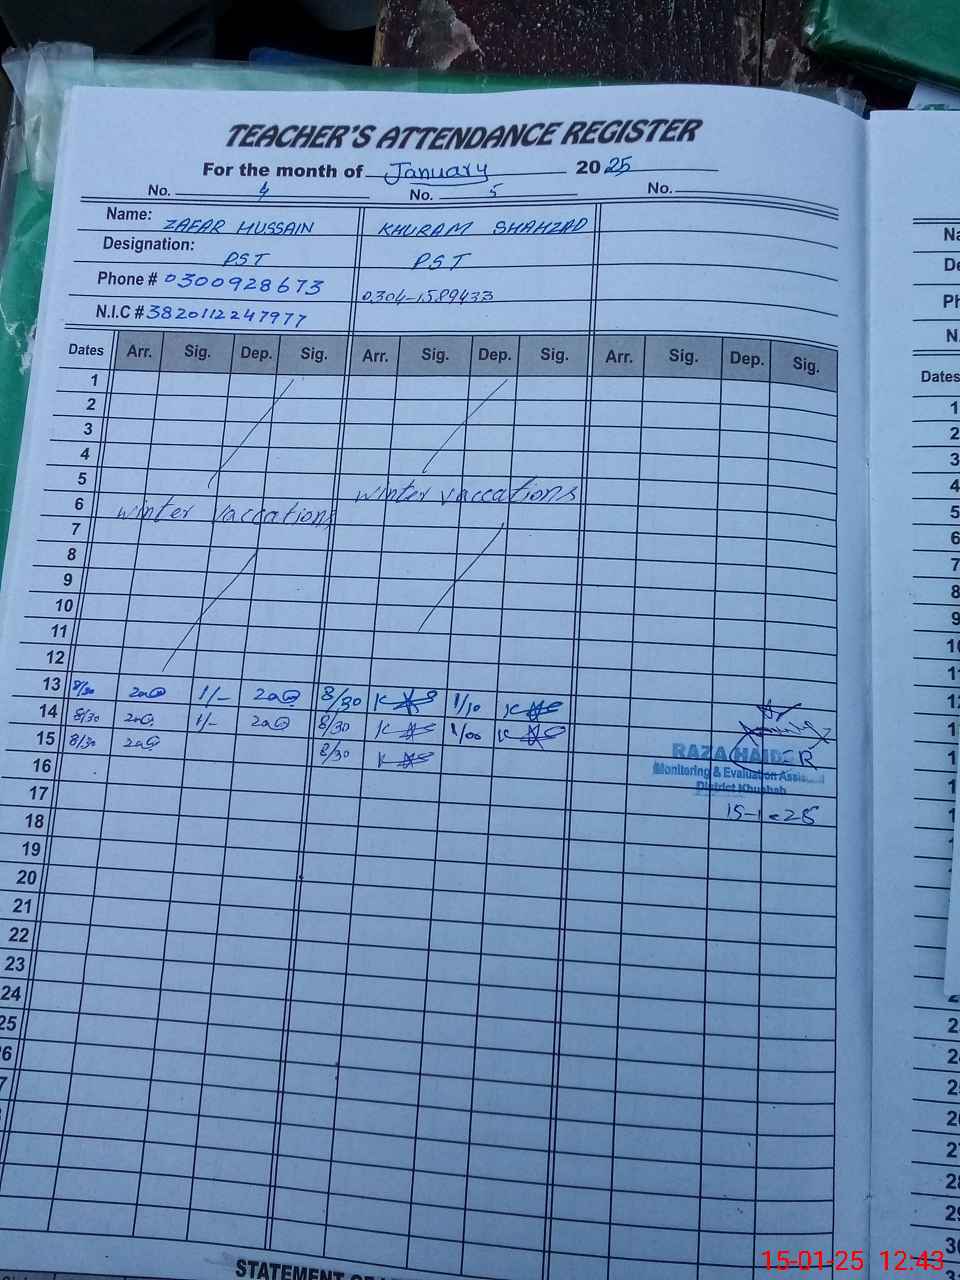 TEACHER'S ATTENDANCE REGISTER
For the month of January 2025
No. 4 No. 5 No.
Name: ZAFAR HUSSAIN KHURAM SHAHZAD
Designation: PST PST
Phone # 0300928673 0304-1589433
N.I.C # 3820112247977
Dates Arr. Sig. Dep. Sig. Arr. Sig. Dep. Sig. Arr. Sig. Dep. Sig.
1
2
3
4
5
winter vaccations
6 winter vaccations
7
8
9
10
11
12
13 8/30 1/- 8/30 1/10
14 8/30 1/- 8/30 1/00
15 8/30 8/30
16
RAZA HAIDER
Monitoring & Evaluation Assistant
District Khushab
17
15-1-25
18
19
20
21
22
23
24
25
26
STATEMENT
Dates
1
2
3
4
5
6
7
8
9
10
11
12
15-01-25 12:43